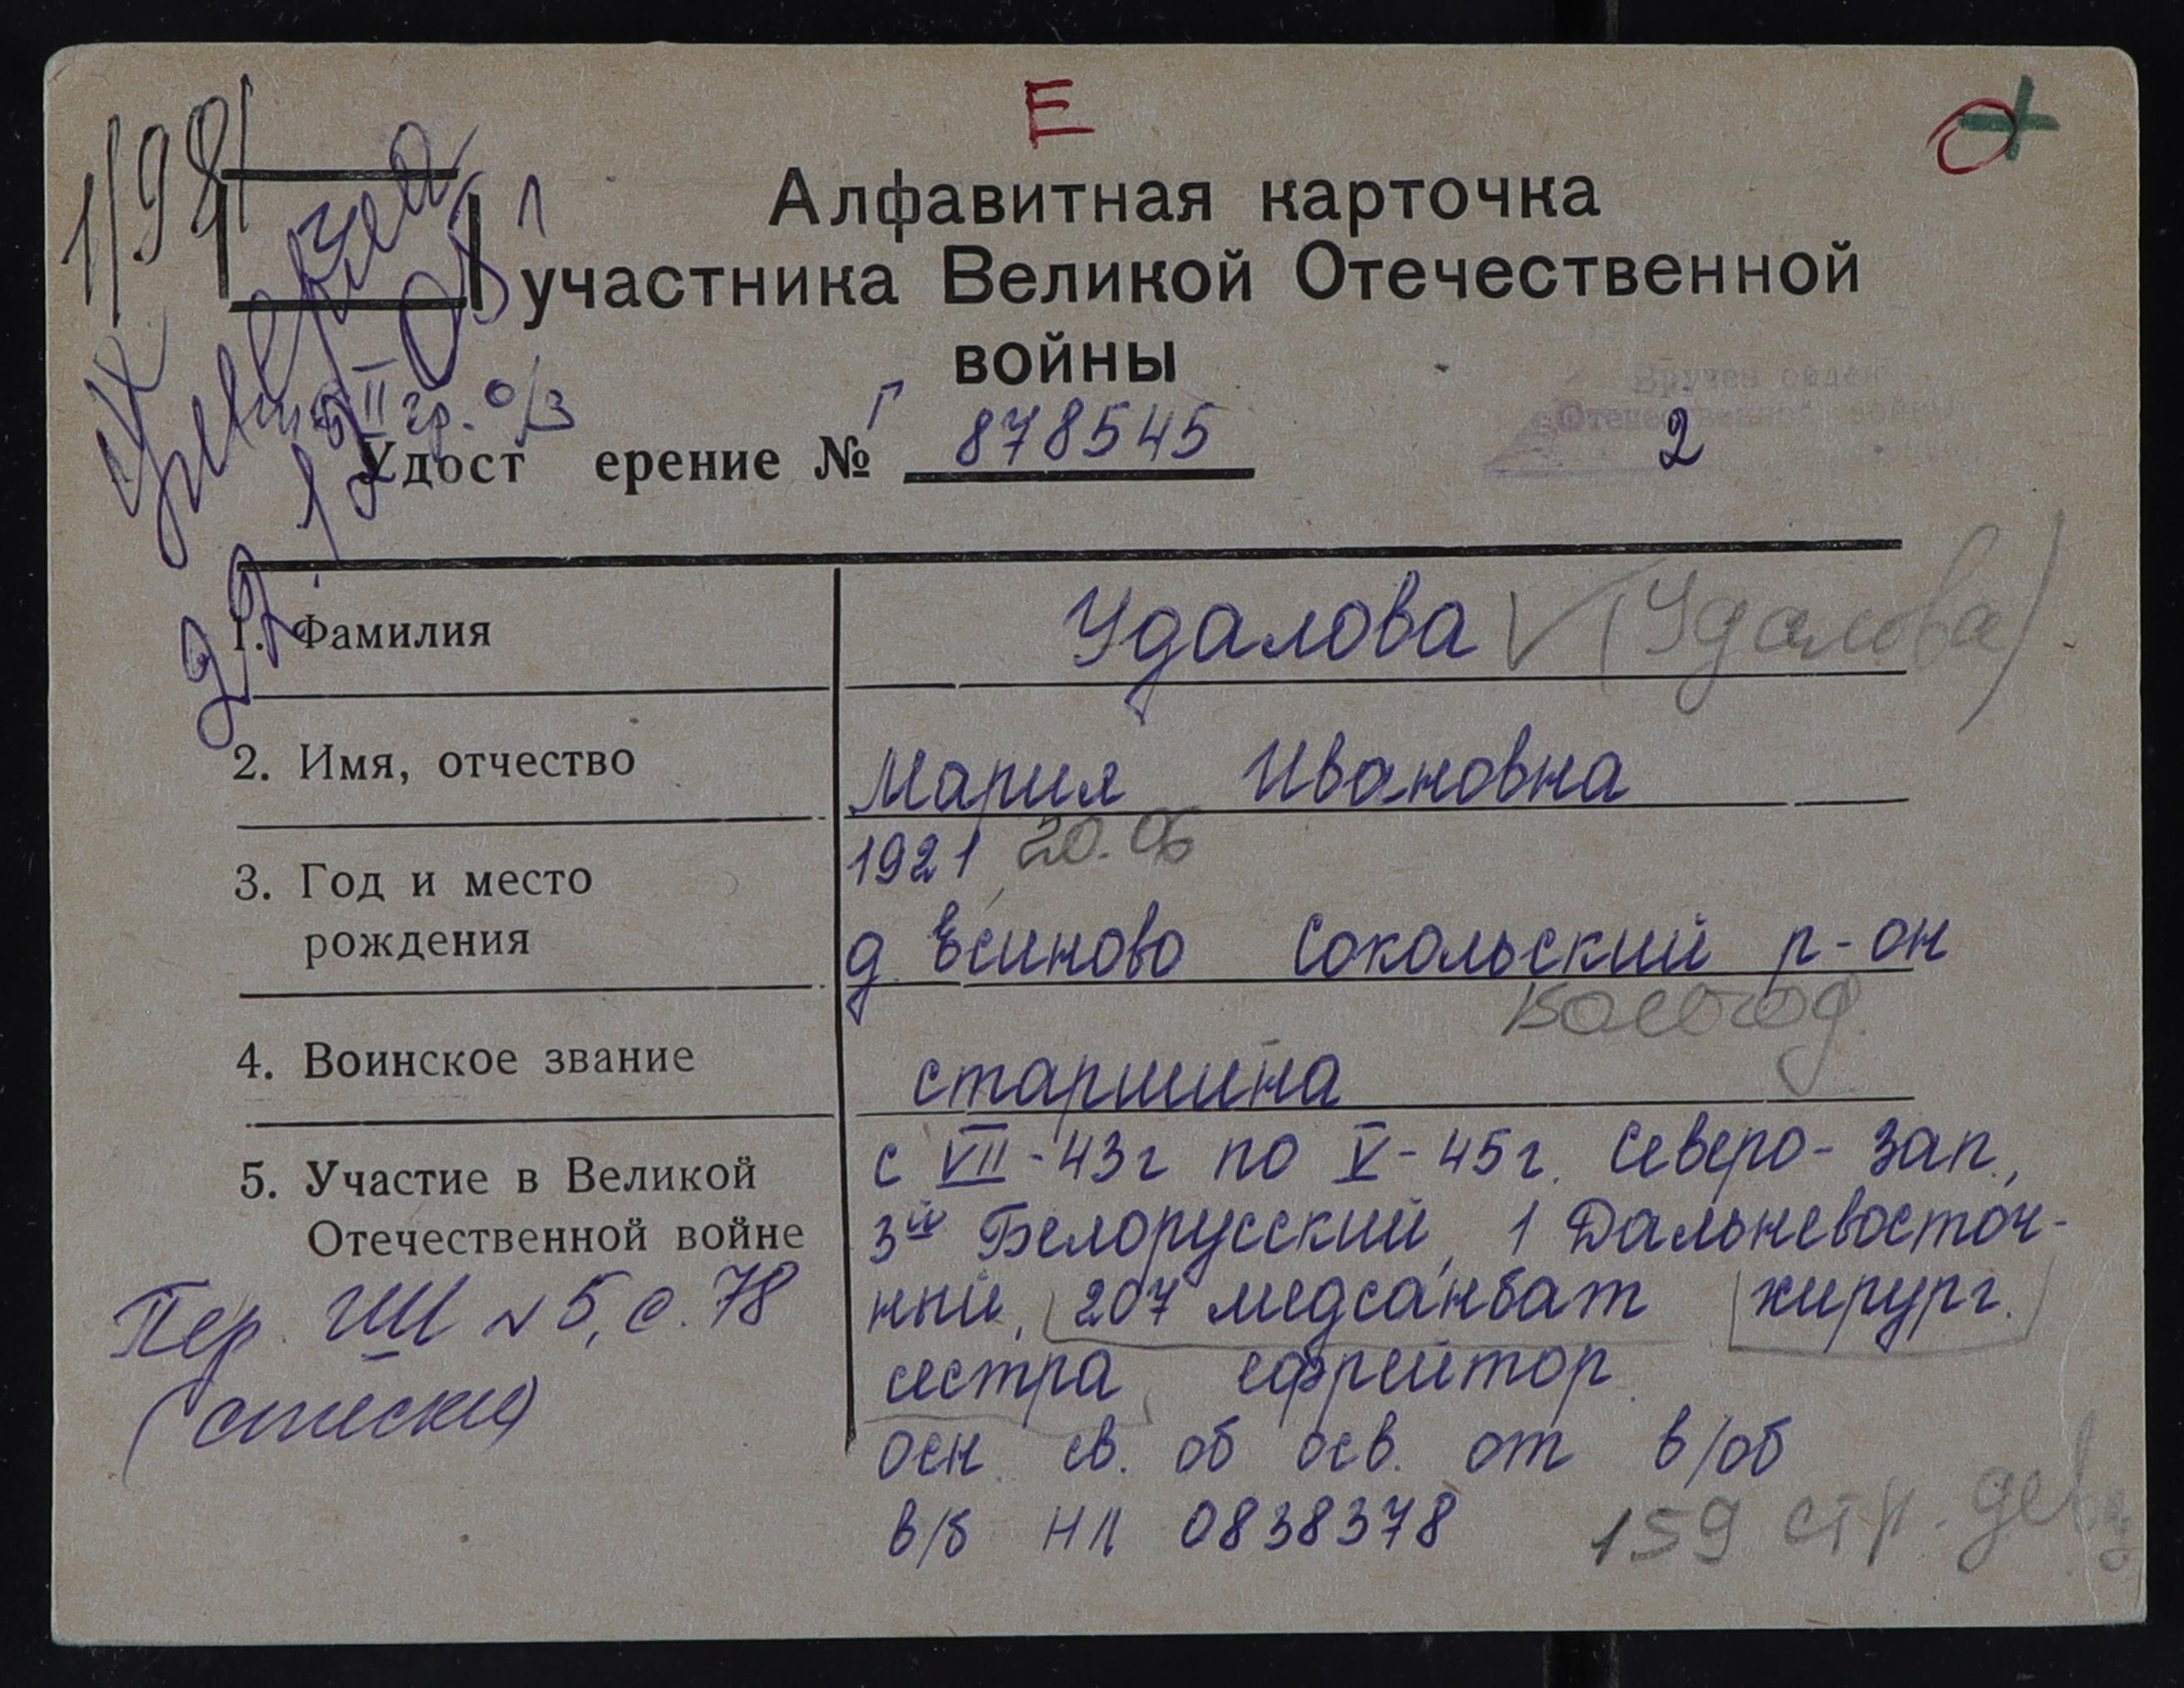 Е
Алфавитная карточка
участника Великой Отечественной
войны
II гр. о/з
Удост ерение № Г 878545
Вручен орден
Отечественной войны
2
1. Фамилия
Удалова (Удалова)
2. Имя, отчество
Мария Ивановна
3. Год и место
рождения
1921 20.06
д. Есиново Сокольский р-он
Вологод.
4. Воинское звание
старшина
5. Участие в Великой
Отечественной войне
с VII-43г по V-45г. Северо-Зап.,
3й Белорусский, 1 Дальневосточ-
ный, 207 медсанбат хирург.
сестра, ефрейтор.
осн. св. об осв. от в/об
в/б НЛ 0838378
159 стр.
Пер. N 5, с. 78
(списки)